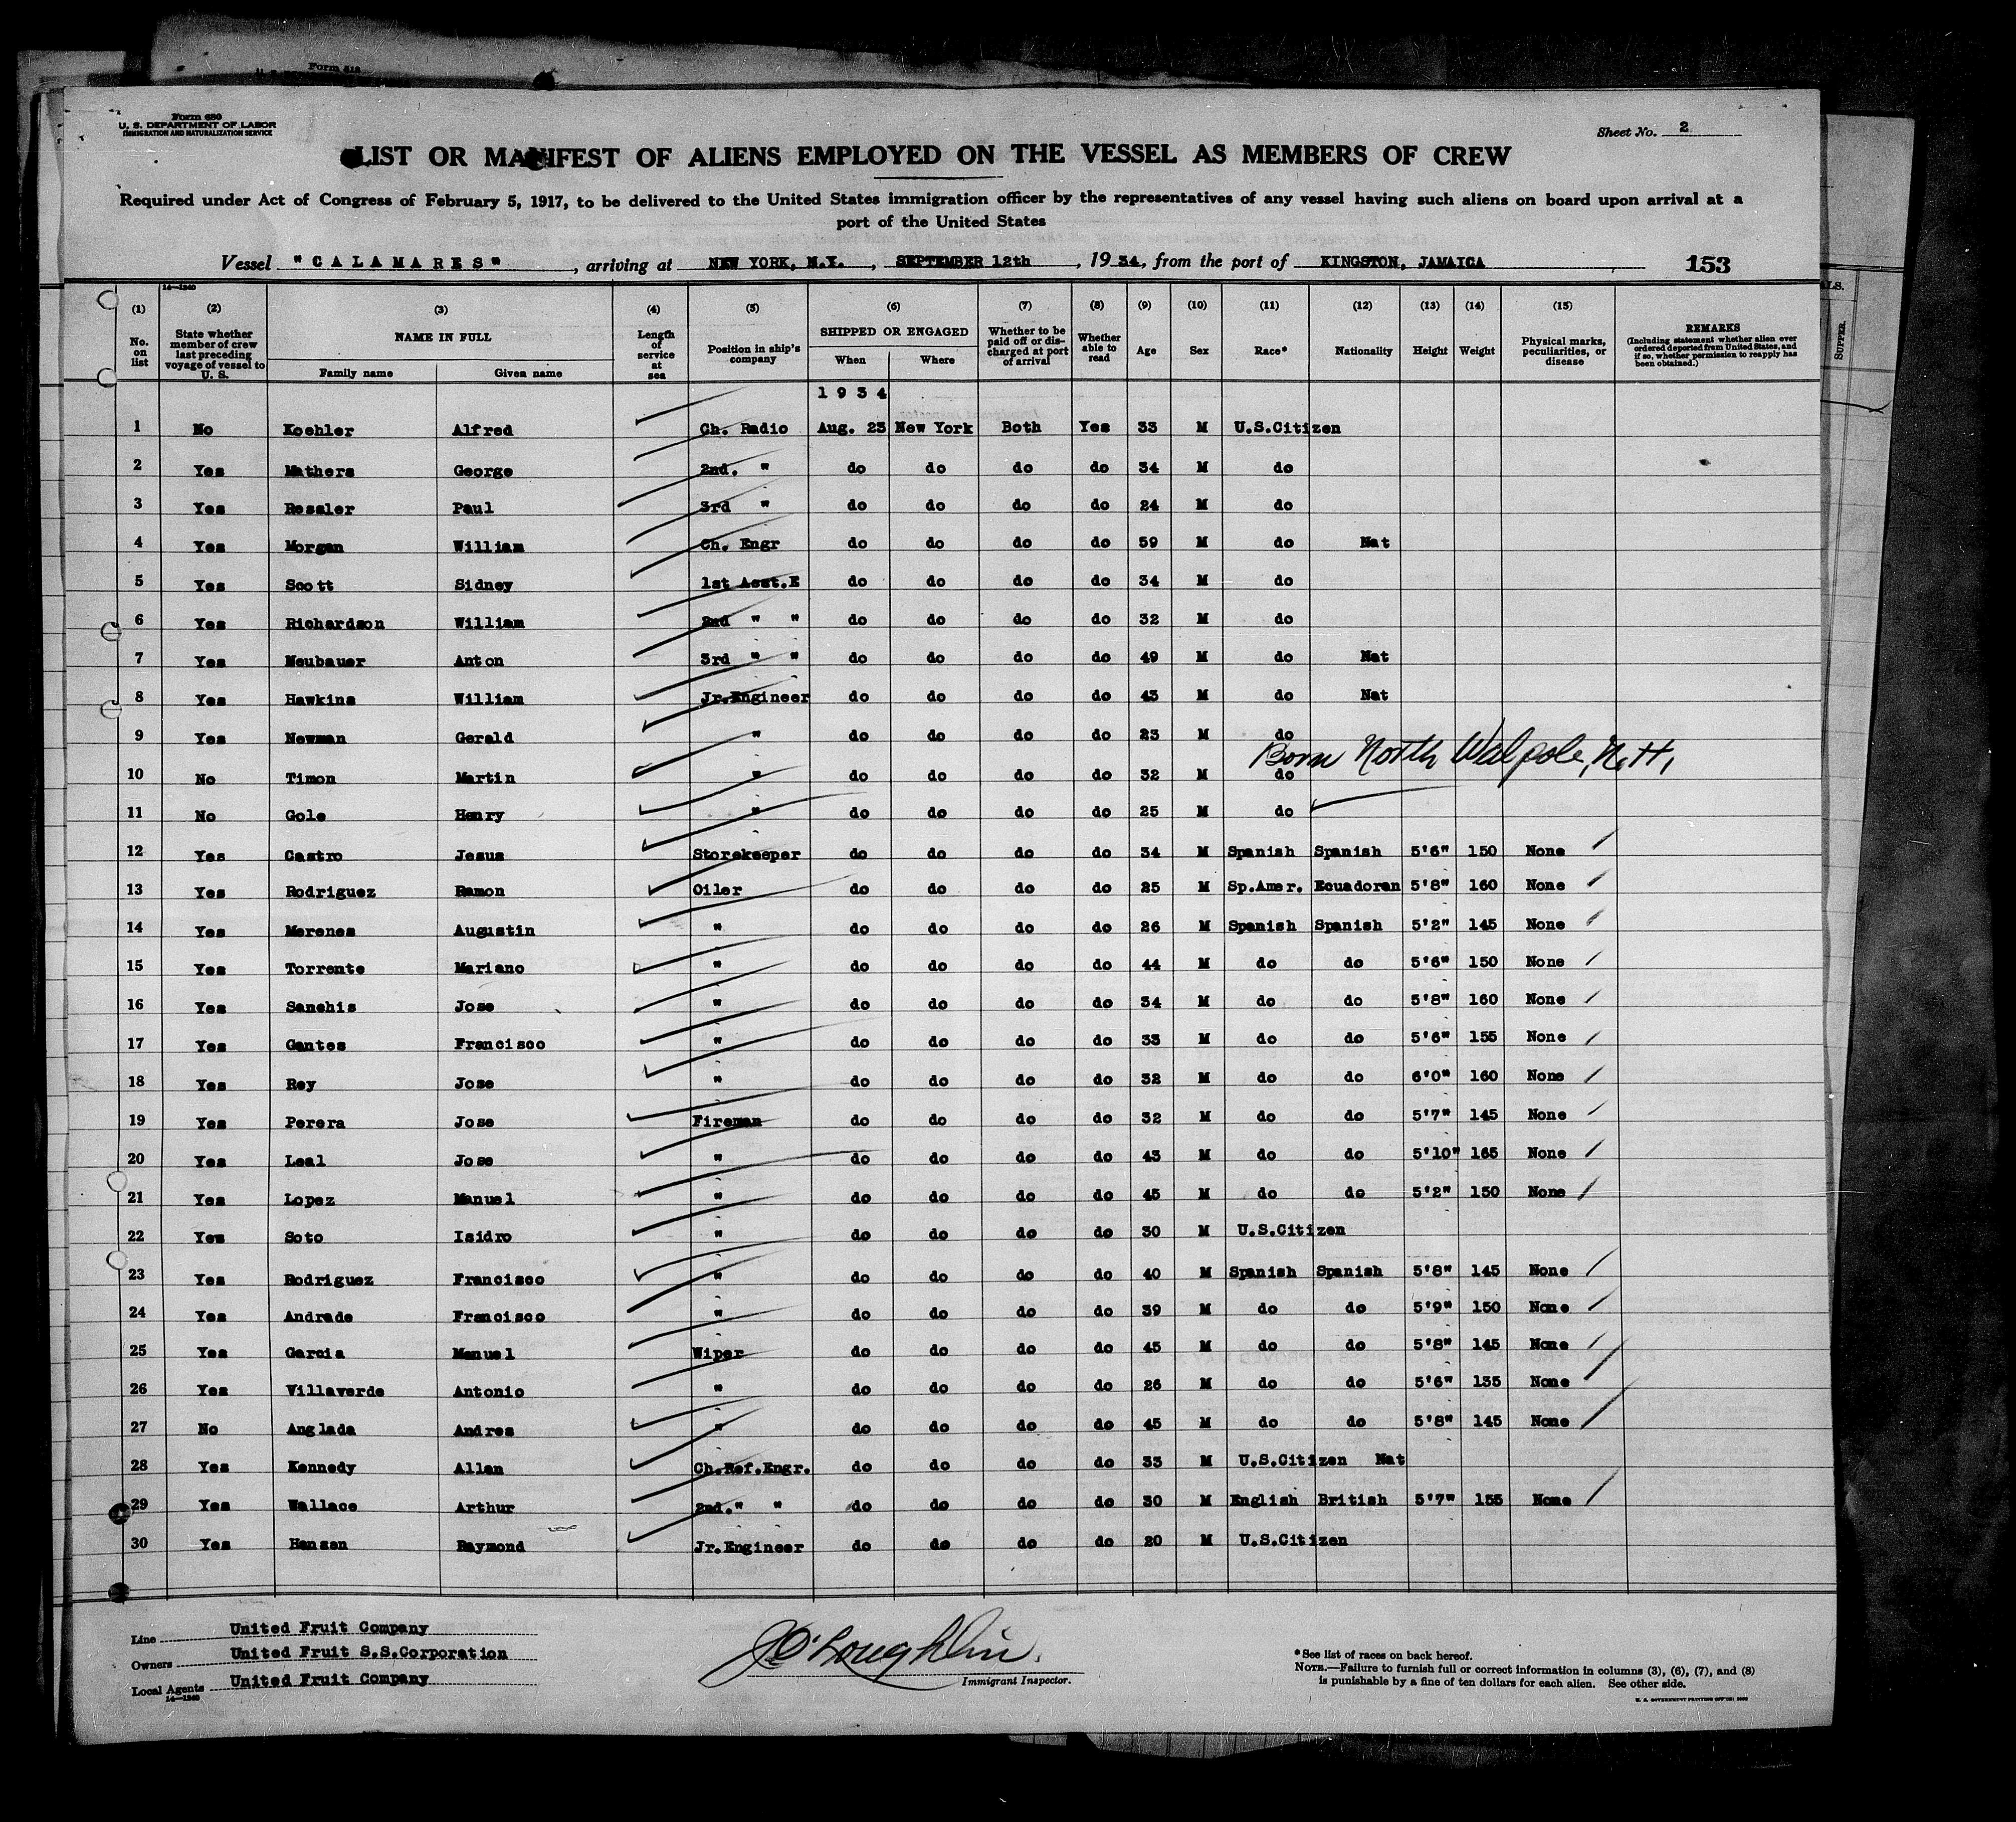 Form 512
Form 680
U. S. DEPARTMENT OF LABOR
IMMIGRATION AND NATURALIZATION SERVICE
Sheet No. 2
LIST OR MANIFEST OF ALIENS EMPLOYED ON THE VESSEL AS MEMBERS OF CREW
Required under Act of Congress of February 5, 1917, to be delivered to the United States immigration officer by the representatives of any vessel having such aliens on board upon arrival at a
port of the United States
Vessel "CALAMARES", arriving at NEW YORK, N.Y., SEPTEMBER 12th, 1934, from the port of KINGSTON, JAMAICA 153
14—1240
(1) (2) (3) (4) (5) (6) (7) (8) (9) (10) (11) (12) (13) (14) (15)
No. on list
State whether member of crew last preceding voyage of vessel to U. S.
NAME IN FULL
Family name Given name
Length of service at sea
Position in ship's company
SHIPPED OR ENGAGED
When Where
Whether to be paid off or discharged at port of arrival
Whether able to read
Age Sex Race* Nationality Height Weight
Physical marks, peculiarities, or disease
REMARKS
(Including statement whether alien ever ordered deported from United States, and if so, whether permission to reapply has been obtained.)
SUPPER.
1934
1 No Koehler Alfred Ch. Radio Aug. 23 New York Both Yes 33 M U.S.Citizen
2 Yes Mathers George 2nd. " do do do do 34 M do
3 Yes Ressler Paul 3rd " do do do do 24 M do
4 Yes Morgan William Ch. Engr do do do do 59 M do Nat
5 Yes Scott Sidney 1st Asst.E do do do do 34 M do
6 Yes Richardson William 2nd " " do do do do 32 M do
7 Yes Neubauer Anton 3rd " " do do do do 49 M do Nat
8 Yes Hawkins William Jr.Engineer do do do do 43 M do Nat
9 Yes Newman Gerald " do do do do 23 M do
Born North Walpole, N.H.
10 No Timon Martin " do do do do 32 M do
11 No Gole Henry " do do do do 25 M do
12 Yes Castro Jesus Storekeeper do do do do 34 M Spanish Spanish 5'6" 150 None
13 Yes Rodriguez Ramon Oiler do do do do 25 M Sp.Amer. Ecuadoran 5'8" 160 None
14 Yes Merenes Augustin " do do do do 26 M Spanish Spanish 5'2" 145 None
15 Yes Torrente Mariano " do do do do 44 M do do 5'6" 150 None
16 Yes Sanchis Jose " do do do do 34 M do do 5'8" 160 None
17 Yes Gantes Francisco " do do do do 33 M do do 5'6" 155 None
18 Yes Rey Jose " do do do do 32 M do do 6'0" 160 None
19 Yes Perera Jose Fireman do do do do 32 M do do 5'7" 145 None
20 Yes Leal Jose " do do do do 43 M do do 5'10" 165 None
21 Yes Lopez Manuel " do do do do 45 M do do 5'2" 150 None
22 Yes Soto Isidro " do do do do 30 M U.S.Citizen
23 Yes Rodriguez Francisco " do do do do 40 M Spanish Spanish 5'8" 145 None
24 Yes Andrade Francisco " do do do do 39 M do do 5'9" 150 None
25 Yes Garcia Manuel Wiper do do do do 45 M do do 5'8" 145 None
26 Yes Villaverde Antonio " do do do do 26 M do do 5'6" 135 None
27 No Anglada Andres " do do do do 45 M do do 5'8" 145 None
28 Yes Kennedy Allan Ch.Ref.Engr. do do do do 33 M U.S.Citizen Nat
29 Yes Wallace Arthur 2nd." " do do do do 30 M English British 5'7" 155 None
30 Yes Hansen Raymond Jr.Engineer do do do do 20 M U.S.Citizen
Line United Fruit Company
Owners United Fruit S.S.Corporation
Local Agents United Fruit Company
14—1240
J O'Loughlin.
Immigrant Inspector.
*See list of races on back hereof.
NOTE.—Failure to furnish full or correct information in columns (3), (6), (7), and (8)
is punishable by a fine of ten dollars for each alien. See other side.